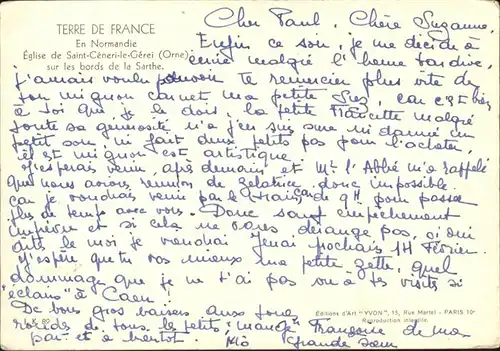 TERRE DE FRANCE
En Normandie
Église de Saint-Céneri-le-Gérei (Orne)
sur les bords de la Sarthe.
Cher Paul, Chère Suzanne,
Enfin ce soir, je me décide à
écrire malgré l'heure tardive,
j'aurais voulu pouvoir te remercier plus vite de
ton mignon carnet ma petite Suz, car c'est bien
à toi que je le dois, la petite malgré
toute sa générosité n'a j'en suis sûre ni donné un
petit sou ni fait deux petits pas pour l'acheter,
il est mignon est artistique
J'espérais venir, après demain et Mr l'Abbé m'a rappelé
que nous avions réunion de donc impossible
car je voudrais venir par le train de 9h pour passer
plus de temps avec vous. Donc sauf empêchement
imprévu et si cela ne vous dérange pas, si oui
dites le moi je viendrai Jeudi prochain 14 Février.
J'espère que tu vas mieux ma petite Zette, quel
dommage que je ne t'ai pas vu à tes visites si
"éclairs" à Caen !
De bons gros baisers aux joues
de tous les petits "
part et à bientôt. Françoise de ma
Grande sœur
Éditions d'Art "YVON", 15, Rue Martel - PARIS 10e
Reproduction interdite.